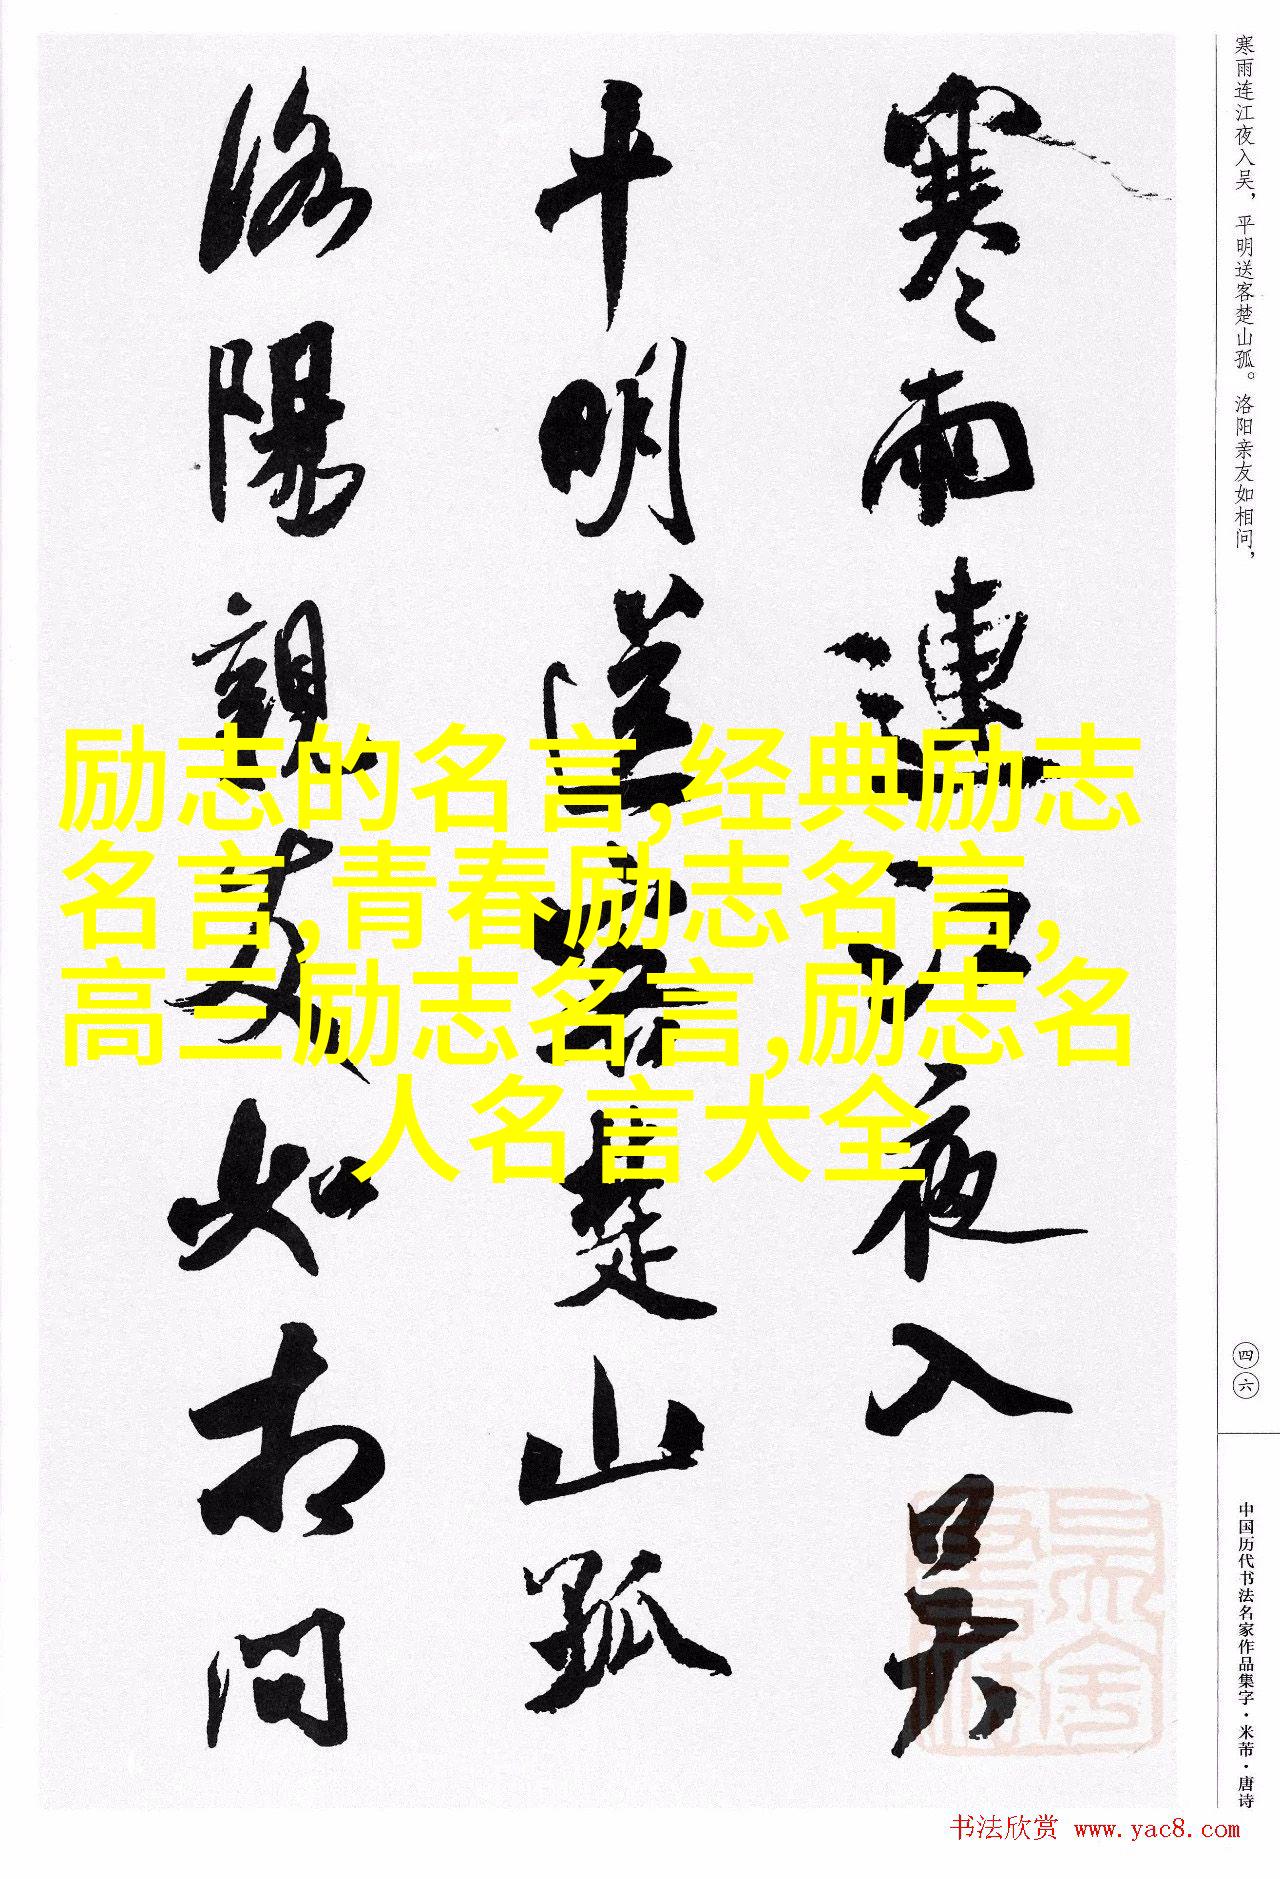 寒雨连江夜入吴，平明送客楚山孤。洛阳亲友如相问，
四六
中国历代书法名家作品集字·米芾·唐诗
寒雨連江夜入吳
平明送客楚山孤
洛陽親友如相問
励志的名言,经典励志
名言,青春励志名言,
高三励志名言,励志名
人名言大全
书法欣赏 www.yac8.com